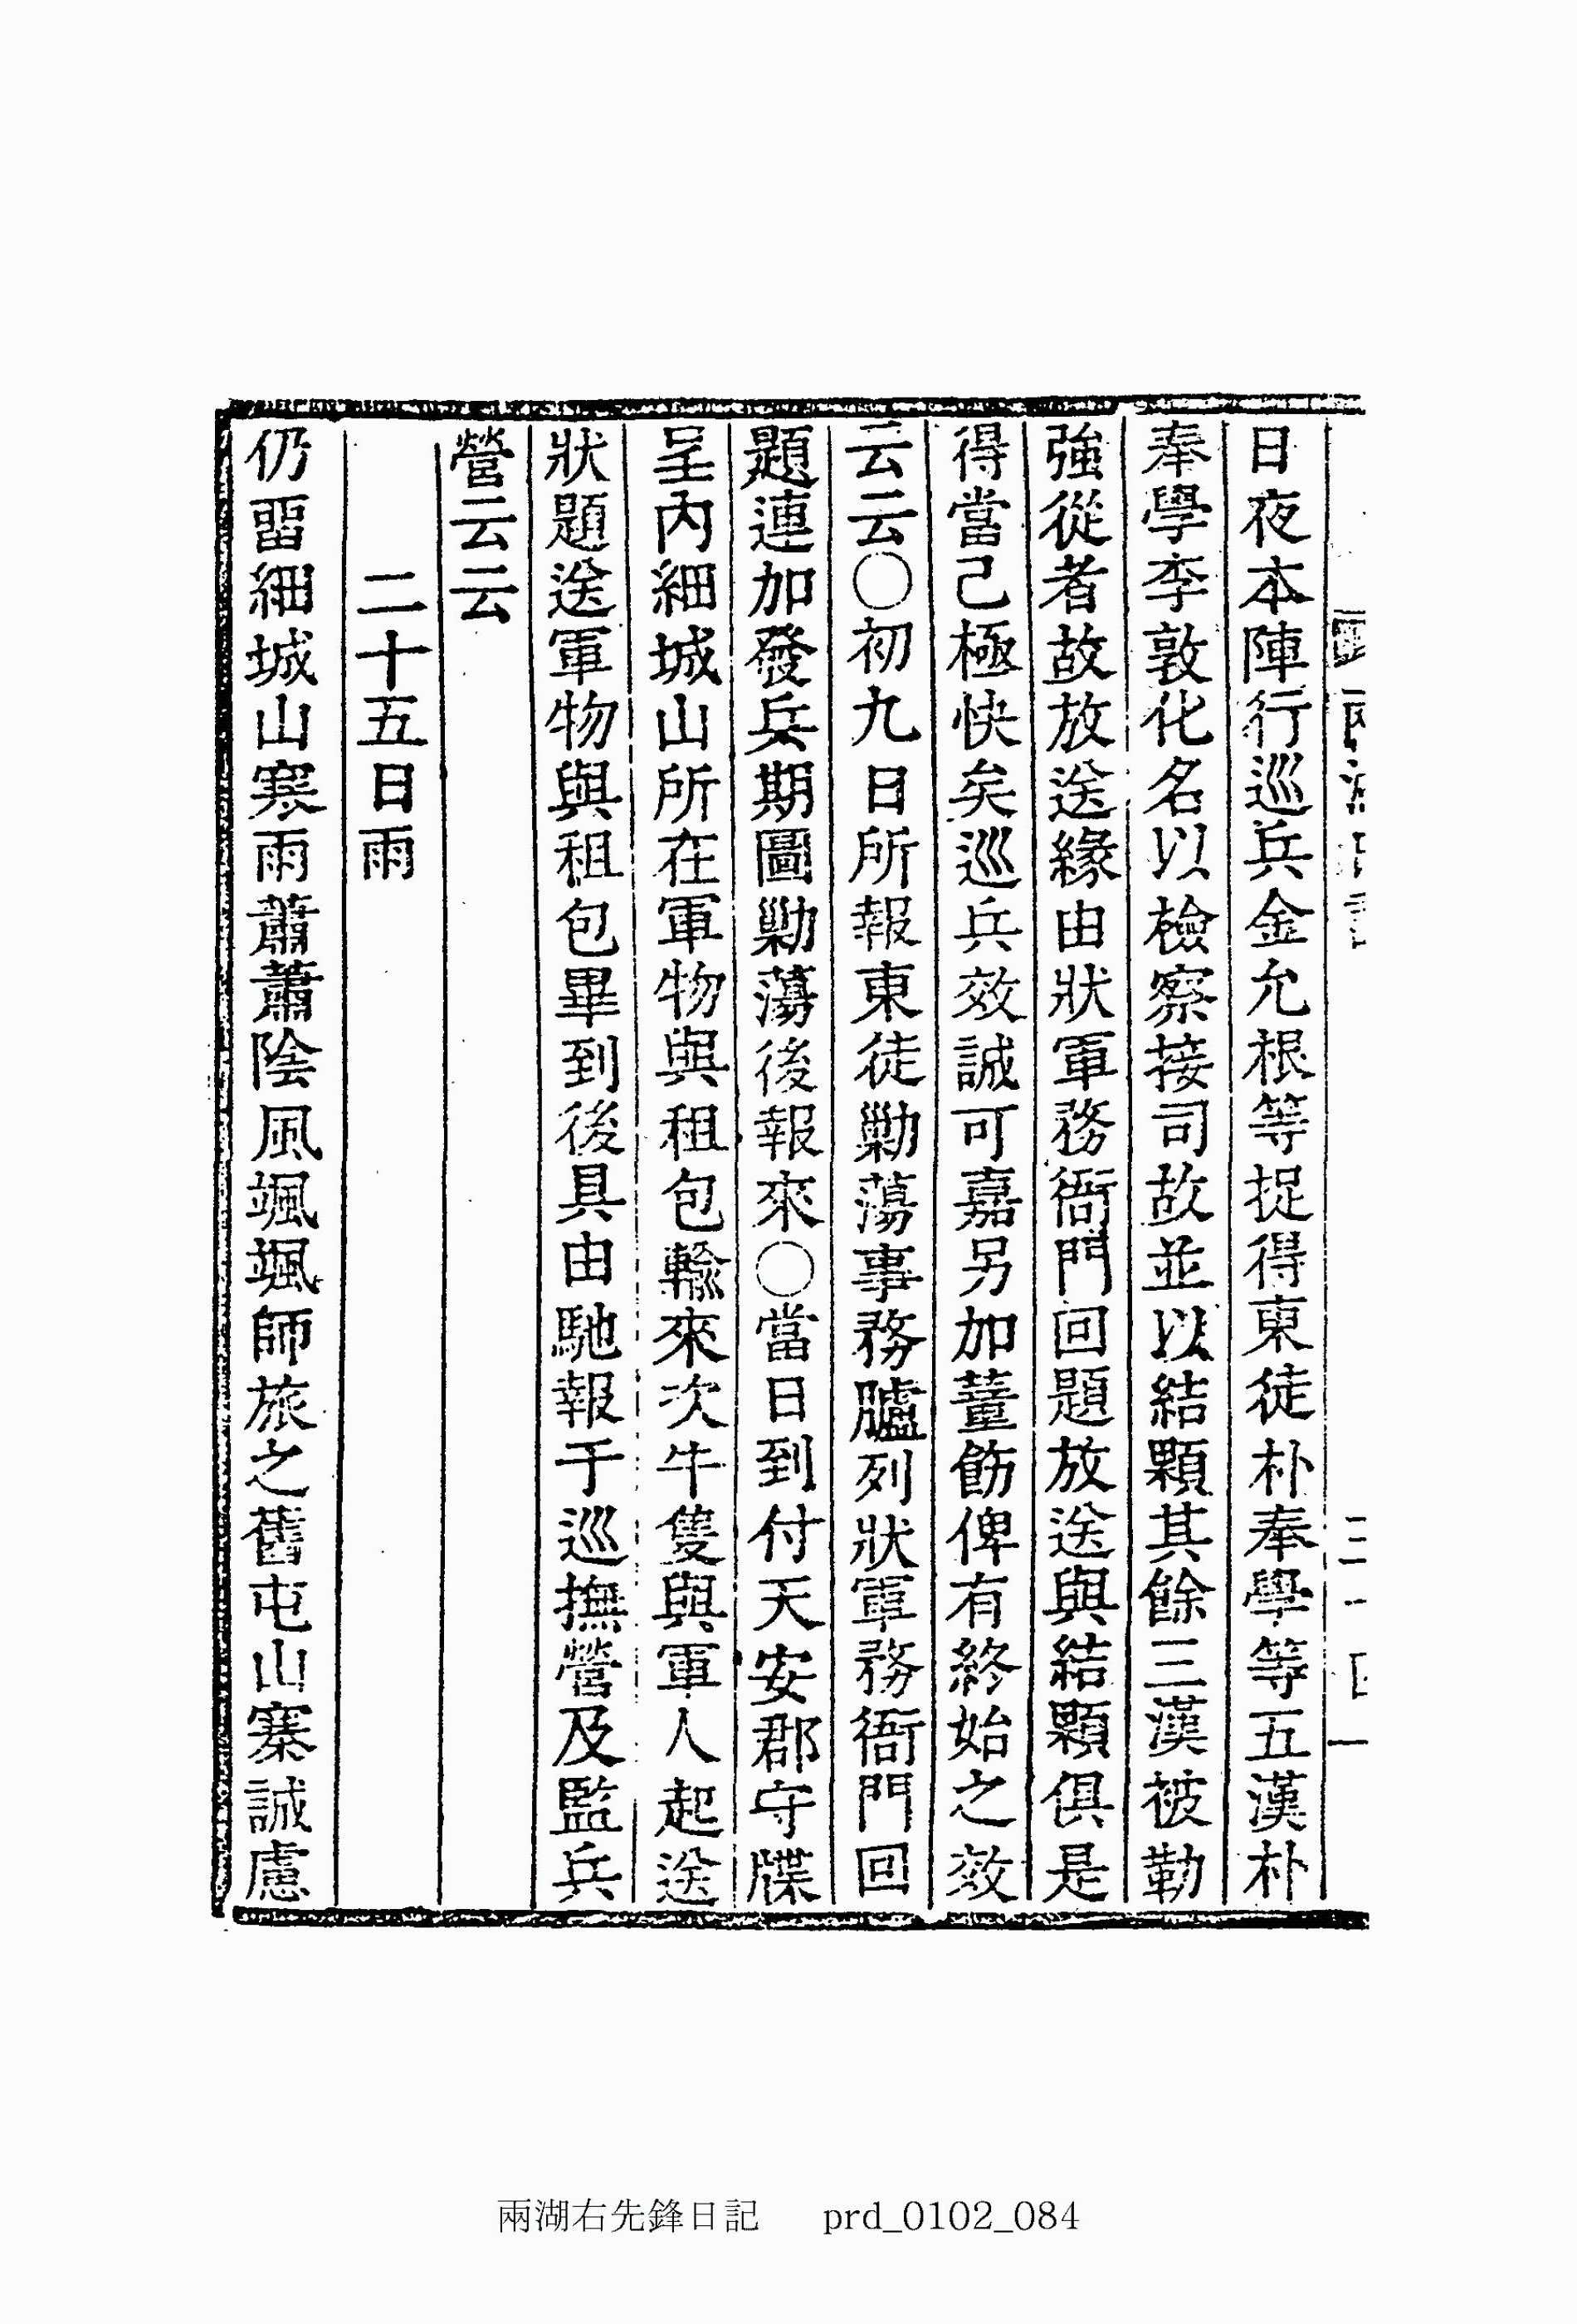 日夜本陣行巡兵金允根等捉得東徒朴奉學等五漢朴
奉學李敦化名以檢察接司故並以結顆其餘三漢被勒
強從者故放送緣由狀軍務衙門回題放送與結顆俱是
得當己極快矣巡兵效誠可嘉另加董飭俾有終始之效
云云〇初九日所報東徒勦蕩事務臚列狀軍務衙門回
題連加發兵期圖勦蕩後報來〇當日到付天安郡守牒
呈內細城山所在軍物與租包輸來次牛隻與軍人起送
狀題送軍物與租包畢到後具由馳報于巡撫營及監兵
營云云
二十五日雨
仍留細城山寒雨蕭蕭陰風颯颯師旅之舊屯山寨誠慮
兩湖右先鋒日記 prd_0102_084